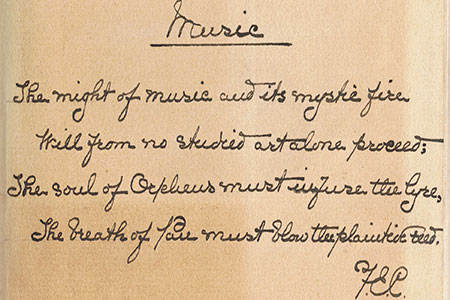 Music
The might of music and its mystic fire
Will from no studied art alone proceed;
The soul of Orpheus must infuse the lyre,
The breath of Pan must blow the plaintive reed.
F.E.C.